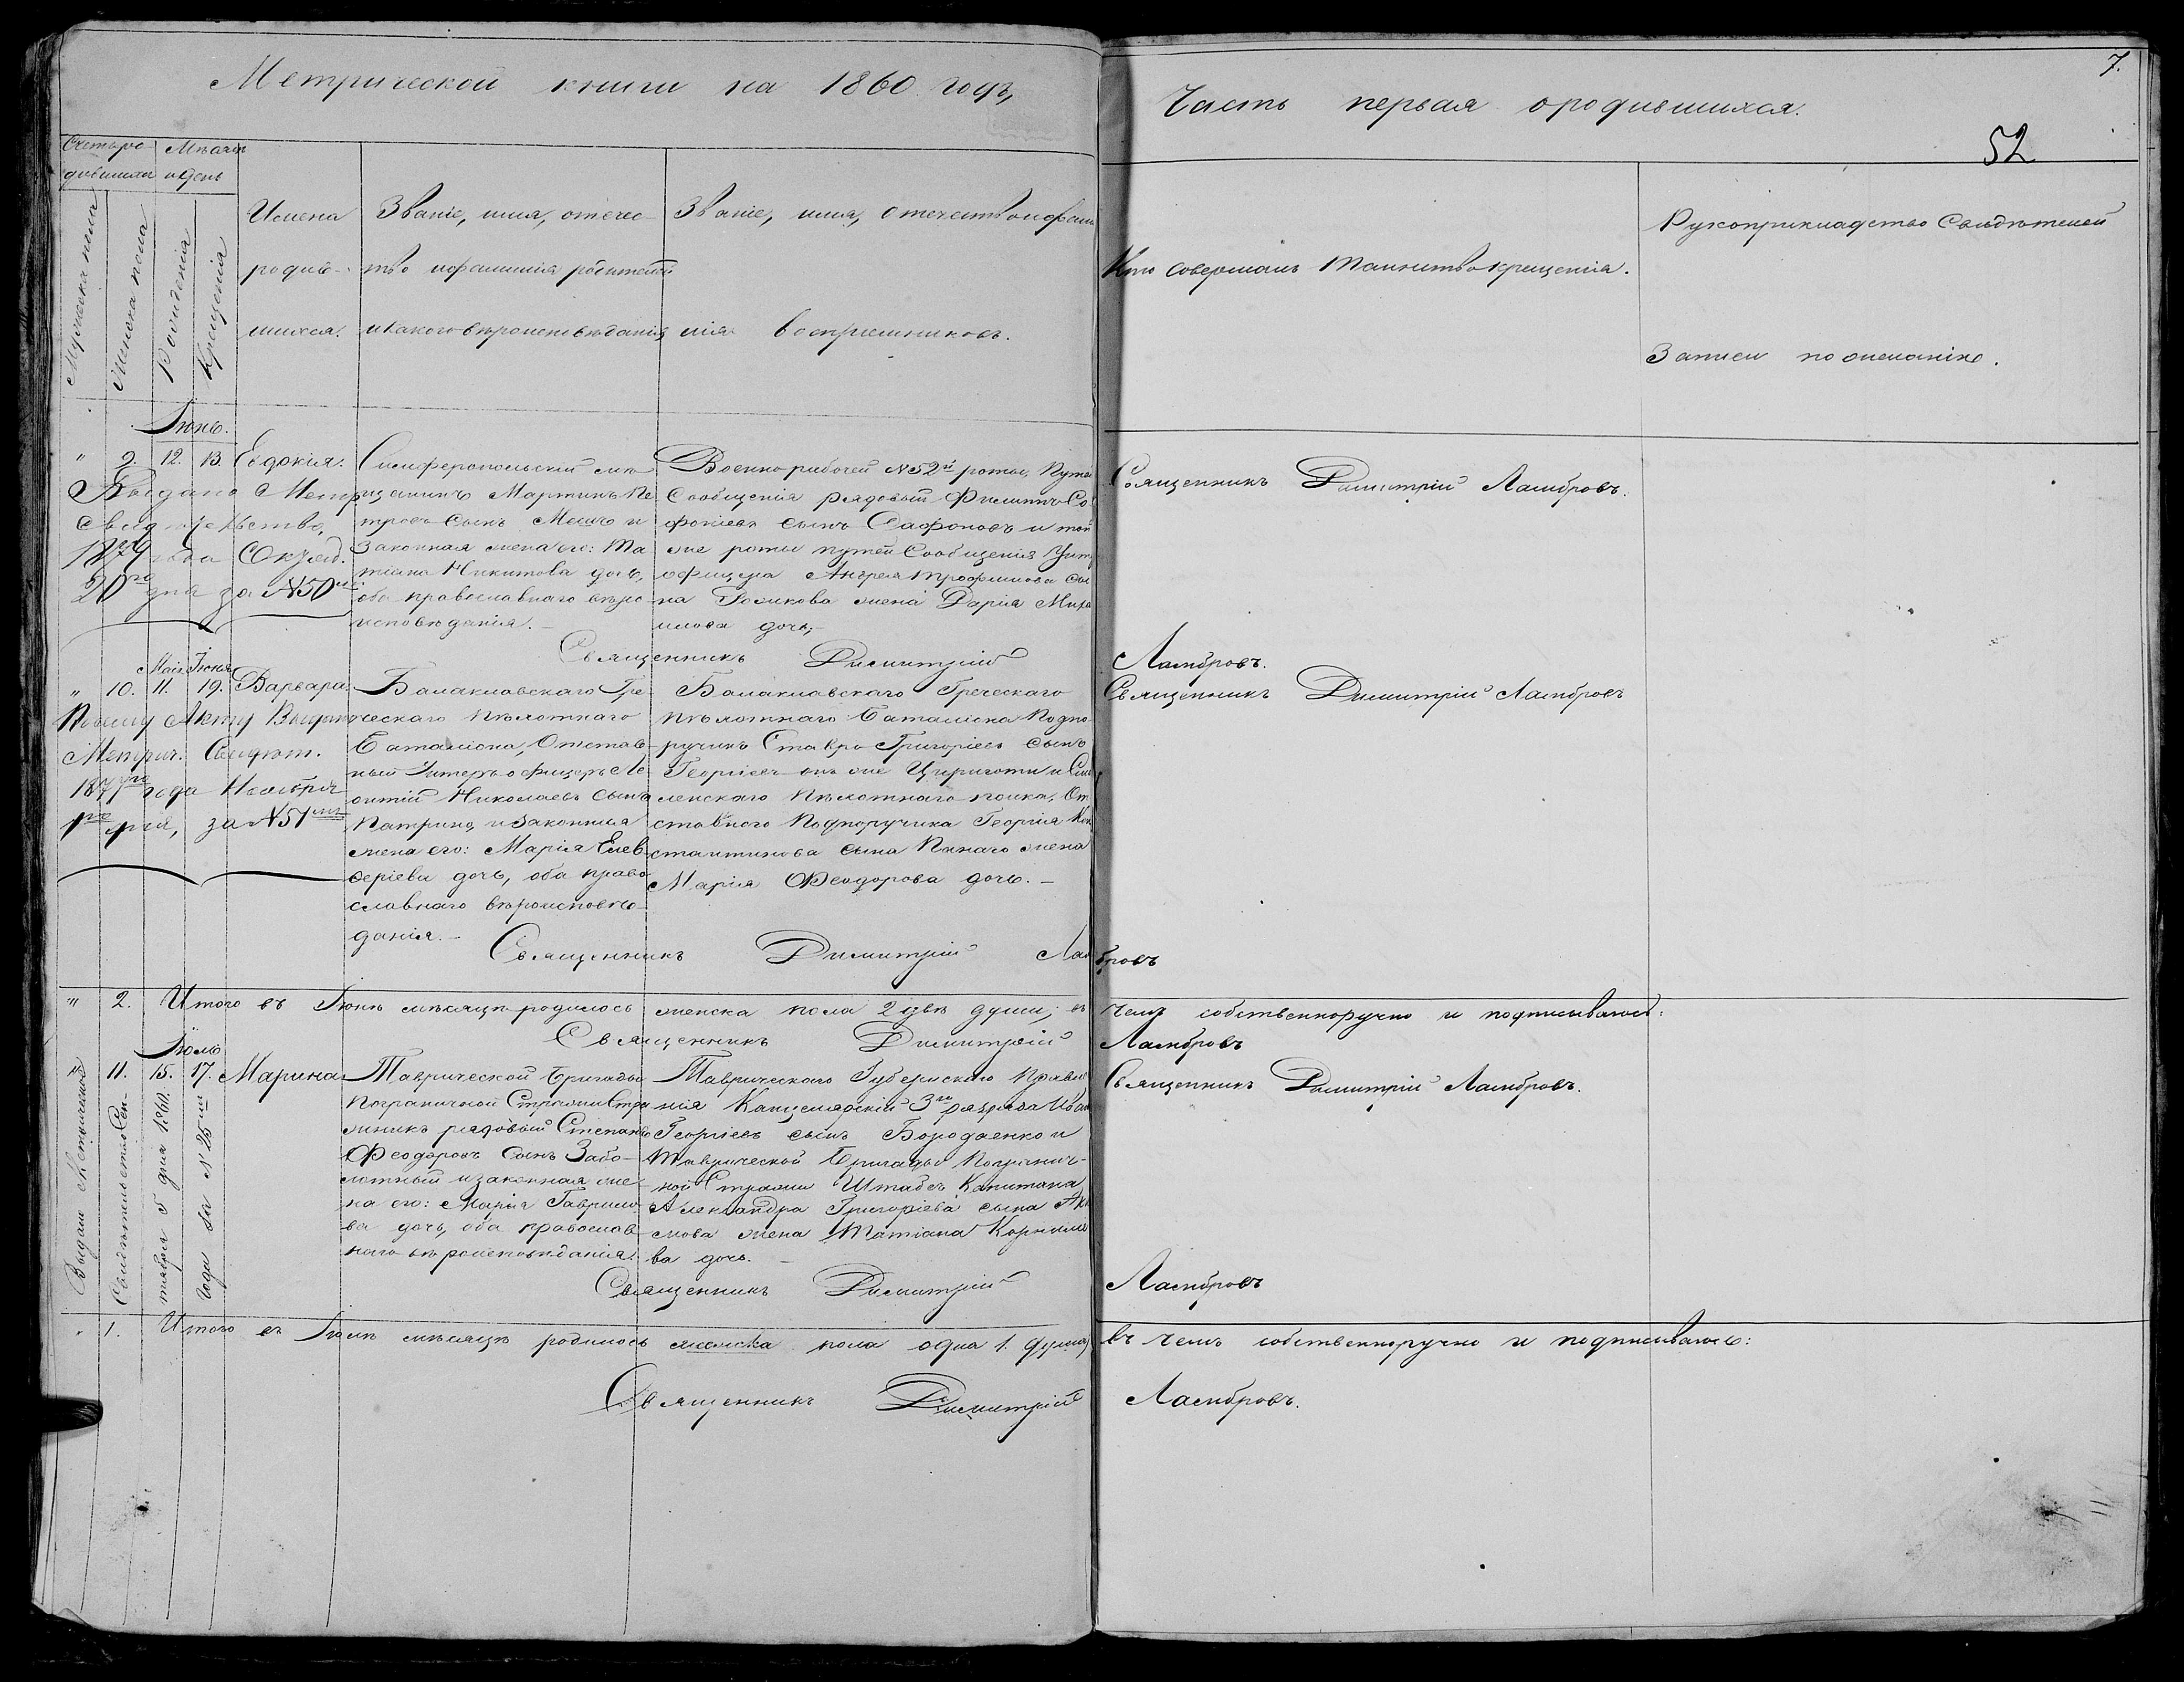 Метрической книги на 1860 годъ,
Часть первая о родившихся.
7.
52
Счетъ ро-
дившихся
Мѣсяцъ
и день
Мужеска пола
Женска пола
Рожденія
Крещенія
Имена
родив-
шихся.
Званіе, имя, отечес-
тво и фамилія родителей
и какого вѣроисповѣданія
Званіе, имя, отечество и фами
лія воспріемниковъ.
Кто совершалъ таинство крещенія.
Рукоприкладство свидѣтелей
записи по желанію.
Іюнь.
" 9. 12. 13. Евдокія.
Симферопольскій мѣ
щанинъ Мартинъ Пе
тровъ сынъ и
законная жена его: Та
тіана Никитова дочь,
оба православнаго вѣро-
исповѣданія.
Военно рабочей №52й роты, Путей
Сообщенія рядовый Филиппъ Со
фоніевъ сынъ Сафоновъ и той
же роты путей Сообщенія Унт
офицера Андрея Трофимова сы
на Голикова жена Дарія Миха
илова дочь,
Священникъ Димитрій Ламбровъ.
Выдано Метр
свидѣтельство,
1879 года Октяб.
20го дня за №50м.
Священникъ Димитрій Ламбровъ.
Мая Іюня
" 10. 11. 19. Варвара.
Балаклавскаго Гре
ческаго пѣхотнаго
баталіона, Отстав-
ный Унтеръ-офицеръ Ле
онтій Николаевъ сынъ
Патрино, и законная
жена его: Марія Елев-
феріева дочь, оба право
славнаго вѣроисповѣ-
данія.
Балаклавскаго Греческаго
пѣхотнаго баталіона Подпо-
ручикъ Ставро Григоріевъ сынъ
Георгіевъ онъ же Цириготи и Смо
ленскаго пѣхотнаго полка, От
ставного Подпоручика Георгія Кон
стантинова сына жена
Марія Феодорова дочь.
Священникъ Димитрій Ламбровъ
По сему Акту Выдано
Метрич. Свидѣт.
1877го года Ноября
1го дня, за №51мъ
Священникъ Димитрій Ламбровъ
" 2. Итого въ Іюнѣ мѣсяцѣ родилось женска пола 2 двѣ души; въ чемъ собственноручно и подписываюсь:
Священникъ Димитрій Ламбровъ
Іюль
" 11. 15. 17. Марина
Таврической бригады
Пограничной Стражи Стра
жникъ рядовый Степанъ
Феодоровъ сынъ Забо-
лотный и законная же
на его: Марія Гаврило
ва дочь, оба православ-
наго вѣроисповѣданія.
Таврическаго Губернскаго Правле
нія Канцелярскій 3го разряда Иван
Георгіевъ сынъ Бородаенко и
Таврической бригады Погранич-
ной Стражи Штабсъ Капитана
Александра Григоріева сына
жена Татіана Корнило
ва дочь.
Священникъ Димитрій Ламбровъ.
Выдано Метрическое
Свидѣтельство Сен-
тября 5 дня 1860.
года за №25мъ
Священникъ Димитрій Ламбровъ
" 1. Итого въ Іюлѣ мѣсяцѣ родилось женска пола одна 1. душа, въ чемъ собственноручно и подписываюсь:
Священникъ Димитрій Ламбровъ.